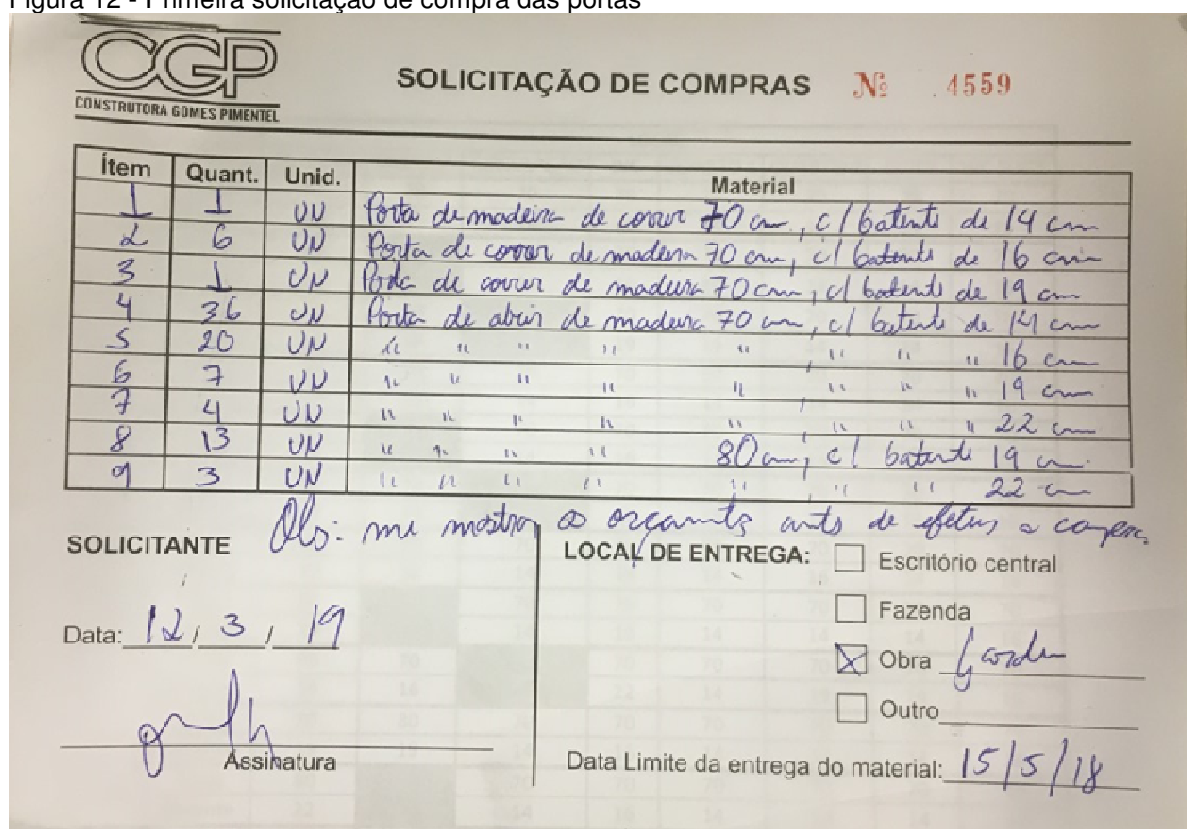 Figura 12 - Primeira solicitação de compra das portas
CGP
CONSTRUTORA GOMES PIMENTEL
SOLICITAÇÃO DE COMPRAS Nº 4559
Ítem Quant. Unid. Material
1 1 UN Porta de madeira de correr 70 cm, c/ batente de 14 cm
2 6 UN Porta de correr de madeira 70 cm, c/ batente de 16 cm
3 1 UN Porta de correr de madeira 70 cm, c/ batente de 19 cm
4 36 UN Porta de abrir de madeira 70 cm, c/ batente de 14 cm
5 20 UN " " " " " , " " " 16 cm
6 7 UN " " " " " , " " " 19 cm
7 4 UN " " " " " , " " " 22 cm
8 13 UN " " " " 80 cm, c/ batente 19 cm.
9 3 UN " " " " " , " " 22 cm
Obs: me mostrar os orçamentos antes de efetuar a compra.
SOLICITANTE
LOCAL DE ENTREGA:
Escritório central
Fazenda
Data: 12/3/19
Obra
Outro
Assinatura
Data Limite da entrega do material: 15/5/18